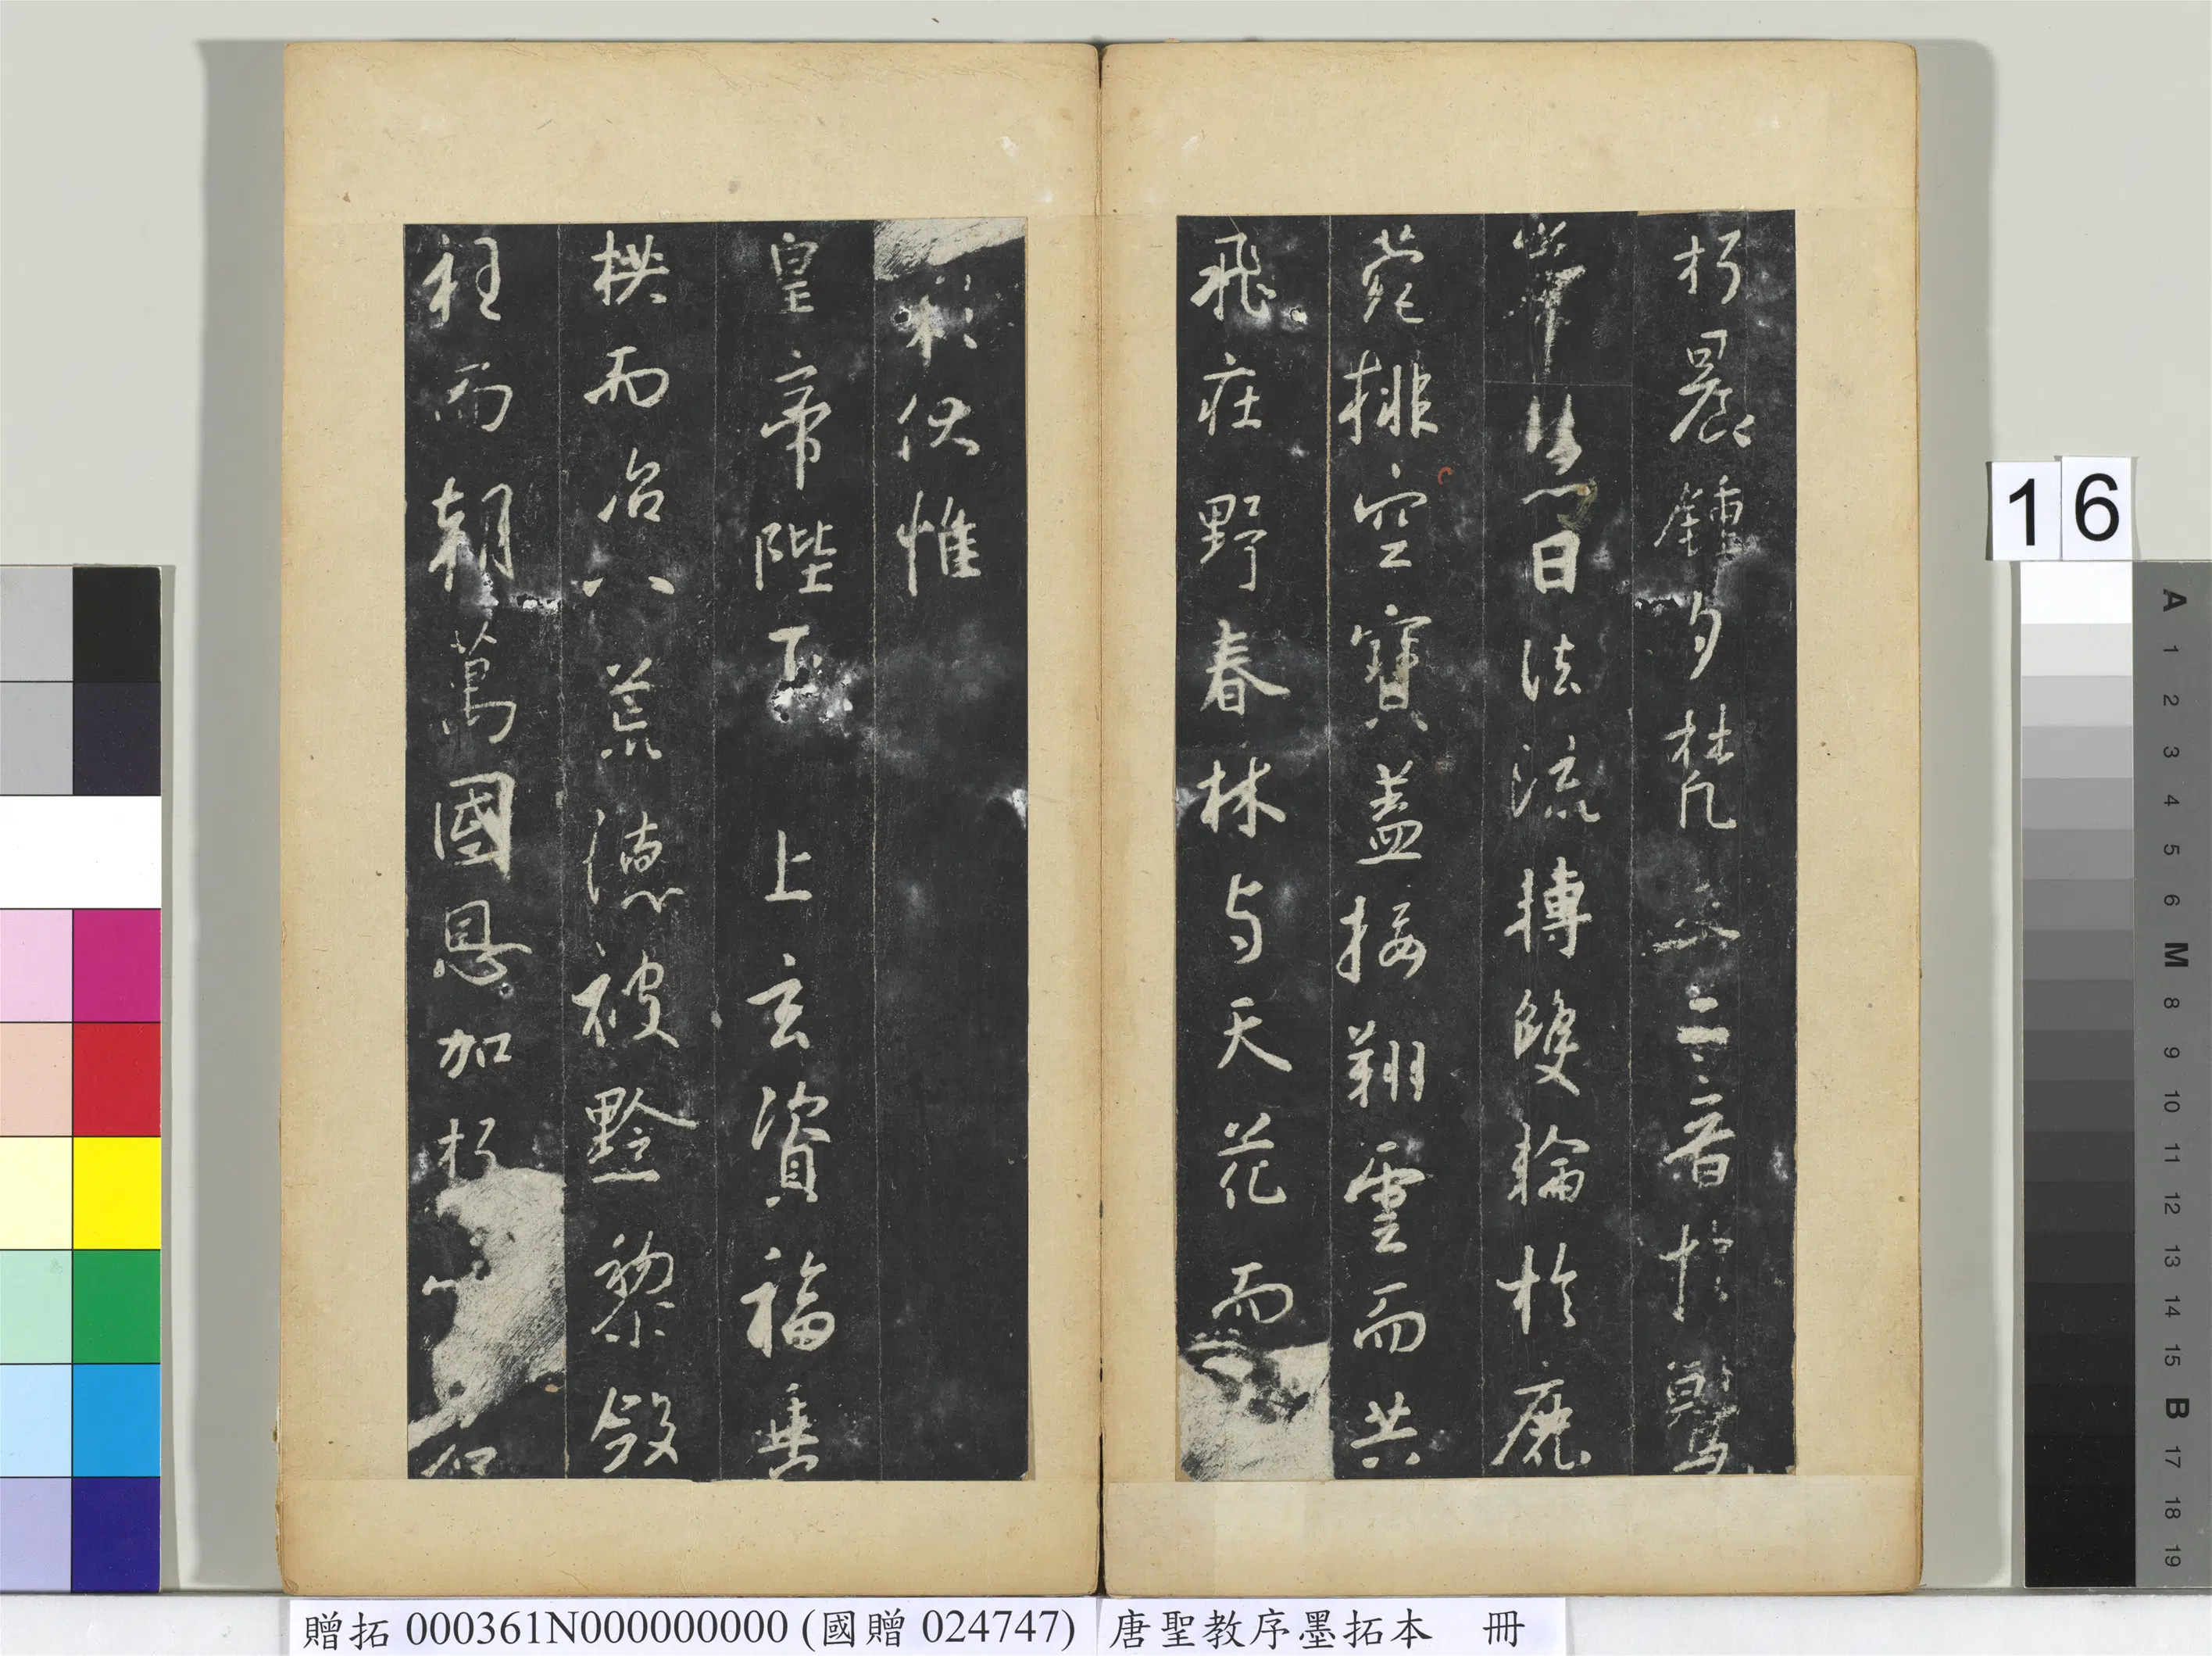 於晨鍾夕梵交二音於鷲
峯慧日法流轉雙輪於鹿
菀排空寶蓋接翔雲而共
飛莊野春林与天花而
彩伏惟
皇帝陛下上玄資福垂
拱而治八荒德被黔黎斂
衽而朝萬國恩加朽石
16
贈拓 000361N000000000 (國贈 024747) 唐聖教序墨拓本 冊
A 1 2 3 4 5 6 M 8 9 10 11 12 13 14 15 B 17 18 19